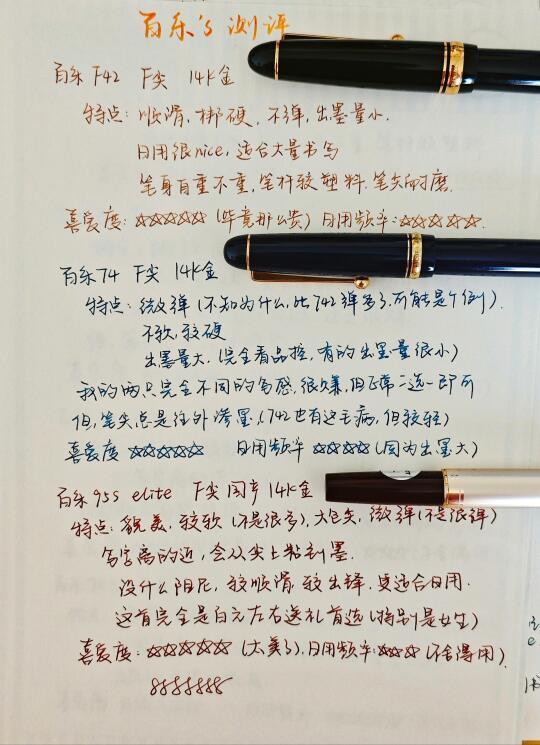 百乐's 测评
百乐742 F尖 14K金
特点：顺滑，梆硬，不弹，出墨量小.
日用很nice，适合大量书写
笔身自重不重，笔杆较塑料.笔尖耐磨.
喜爱度：☆☆☆☆☆（毕竟那么贵）日用频率：☆☆☆☆☆.
百乐74 F尖 14K金
特点：微弹（不知为什么，比742弹多了.可能是个例）.
不软，较硬
出墨量大.（完全看品控，有的出墨量很小）
我的两只完全不同的手感，很欠，但正常二选一即可
但，笔尖总是往外渗墨.（742也有这毛病，但较轻）
喜爱度 ☆☆☆☆☆ 日用频率 ☆☆☆☆（因为出墨大）
百乐95s elite F尖 14K金
特点：貌美，较软（不是很多），大包尖，微弹（不是很弹）
写字离的近，会从尖上粘到墨.
没什么阻尼，较顺滑，较出锋.更适合日用.
这首完全是百元左右送礼首选（特别是女生）
喜爱度：☆☆☆☆☆（太美了）.日用频率：☆☆☆（不舍得用）.